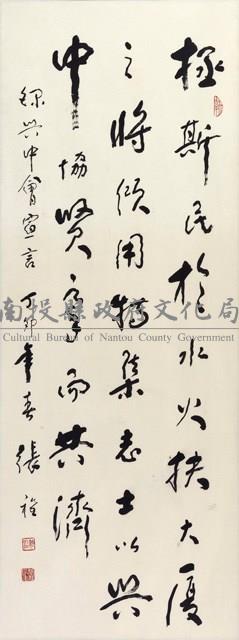 拯斯民於水火扶大廈
之將傾用特集志士以興
中協賢豪而共濟
錄興中會宣言 丁卯年春 張
南投縣政府文化局
Cultural Bureau of Nantou County Government